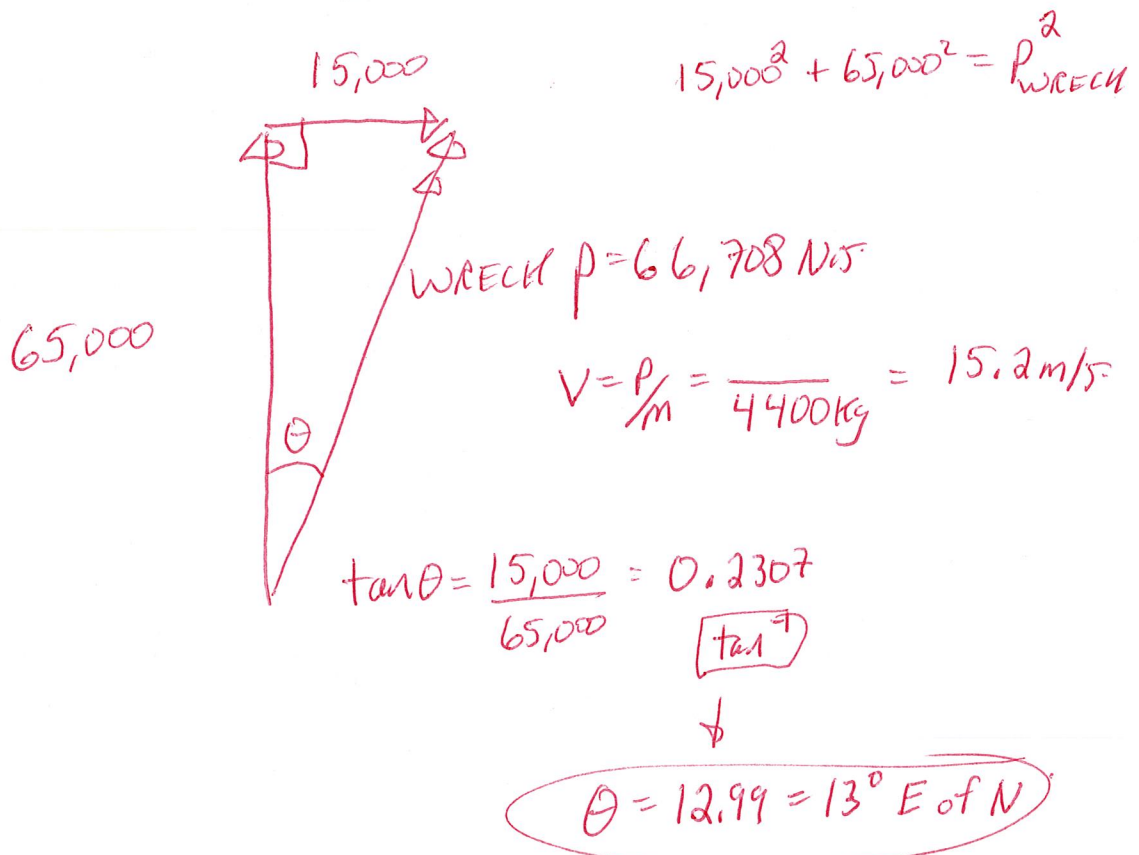 15,000
15,000² + 65,000² = P²WRECK
WRECK p = 66,708 N·s
65,000
V = P/m = /4400kg = 15.2 m/s
θ
tanθ = 15,000/65,000 = 0.2307
tan⁻¹
θ = 12.99 = 13° E of N